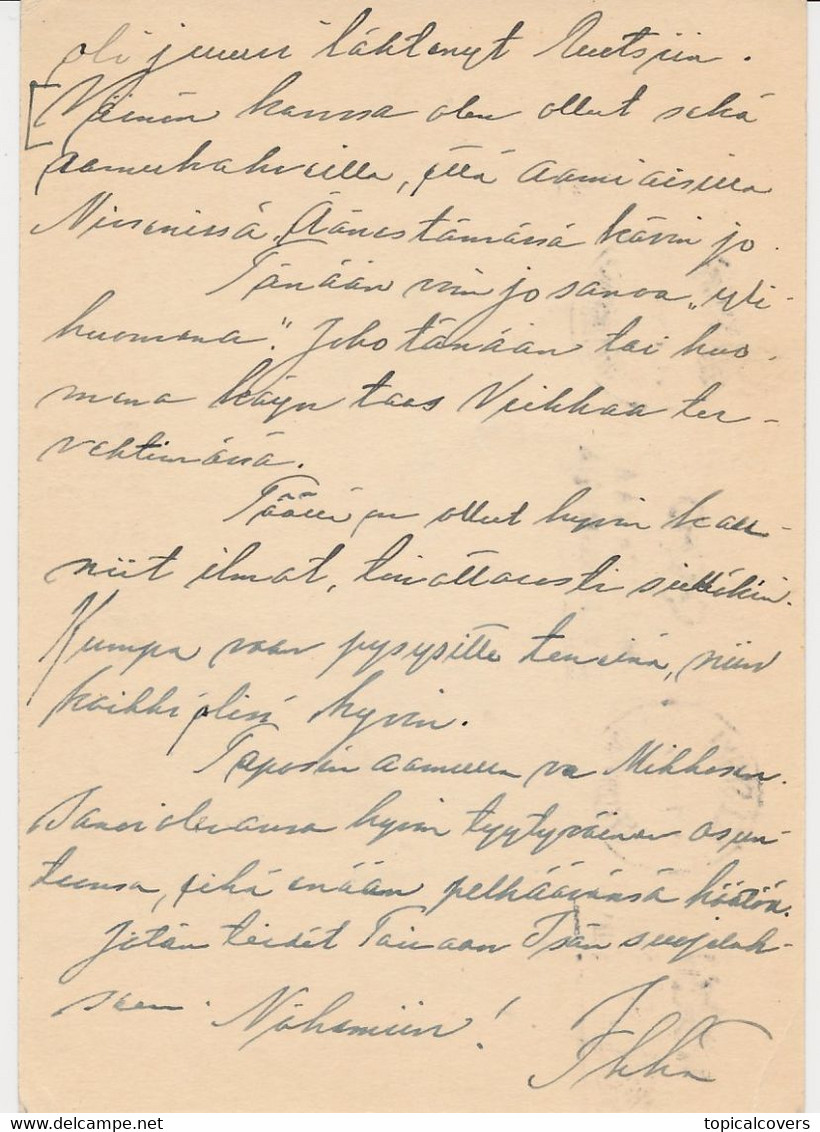 oli juuri lähtenyt Ruotsiin.
Väinön kanssa olen ollut sekä
aamukahveilla, että aamiaisilla
Nissenissä. Äänestämässä kävin jo.
Tänään voin jo sanoa „yli-
huomena". Joko tänään tai huo-
mena käyn taas Veikkaa ter-
vehtimässä.
Täällä on ollut hyvin kau-
niit ilmat, toivottavasti sielläkin.
Kumpa vaan pysysitte terveinä, niin
kaikki olisi hyvin.
Tapasin aamulla va Mikkosen.
Sanoi olevansa hyvin tyytyväinen asun-
toonsa, eikä enään pelkäävänsä häätöä.
Jätän teidät Taivaan Isän suojeluk-
seen. Näkemiin!
Ilkka
delcampe.net
topicalcovers